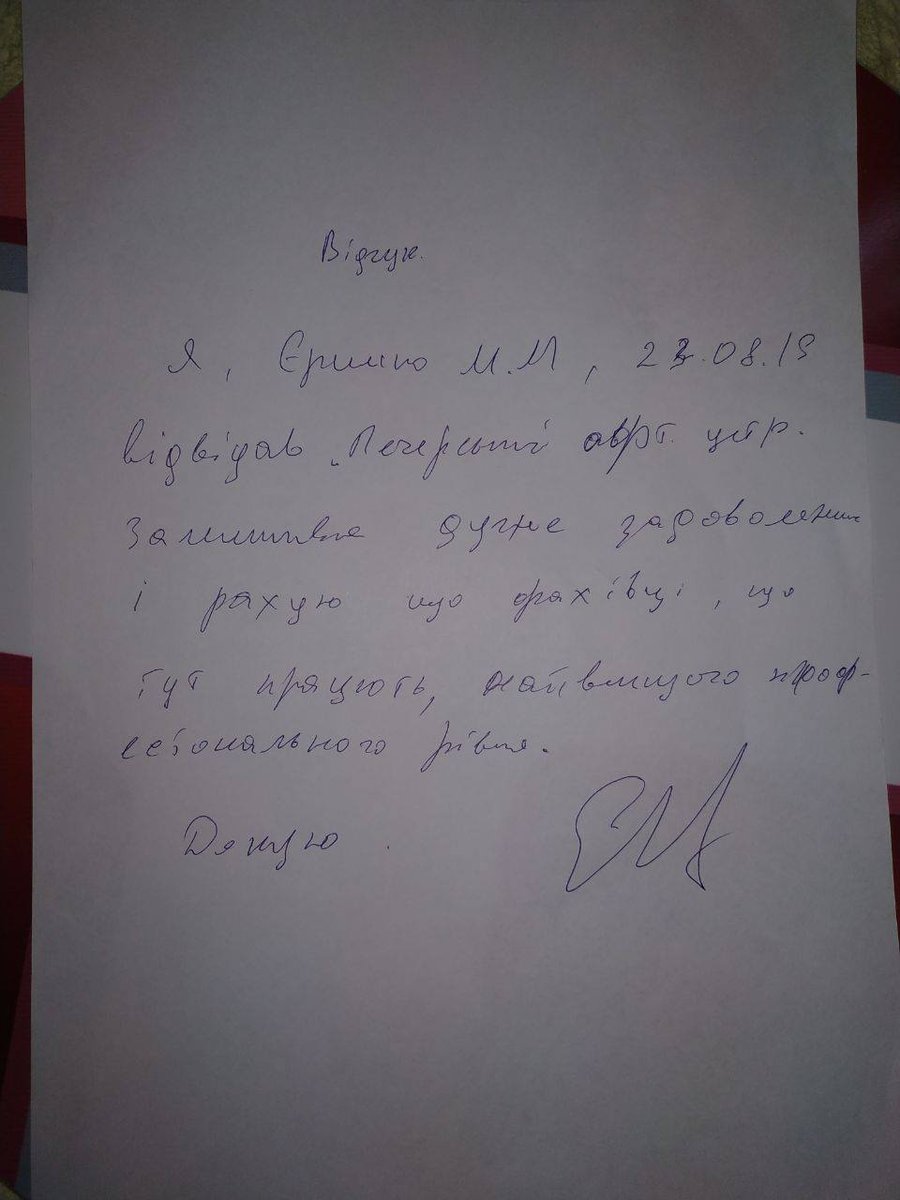 Відгук.
Я, М.М, .08.19
відвідав „Печерський арт. цтр.
Залишився дуже задоволений
і рахую що фахівці, що
тут працюють, найвищого проф-
есіонального рівня.
Дякую.